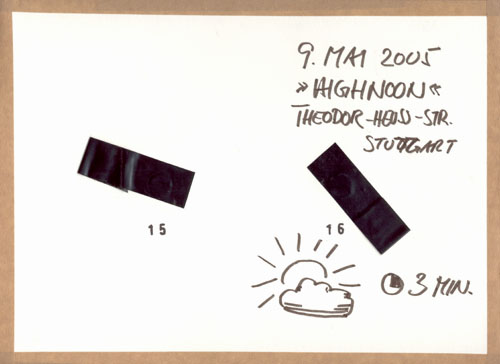 9. MAI 2005
»HIGHNOON«
THEODOR-HEUSS-STR.
STUTTGART
15
16
3 MIN.